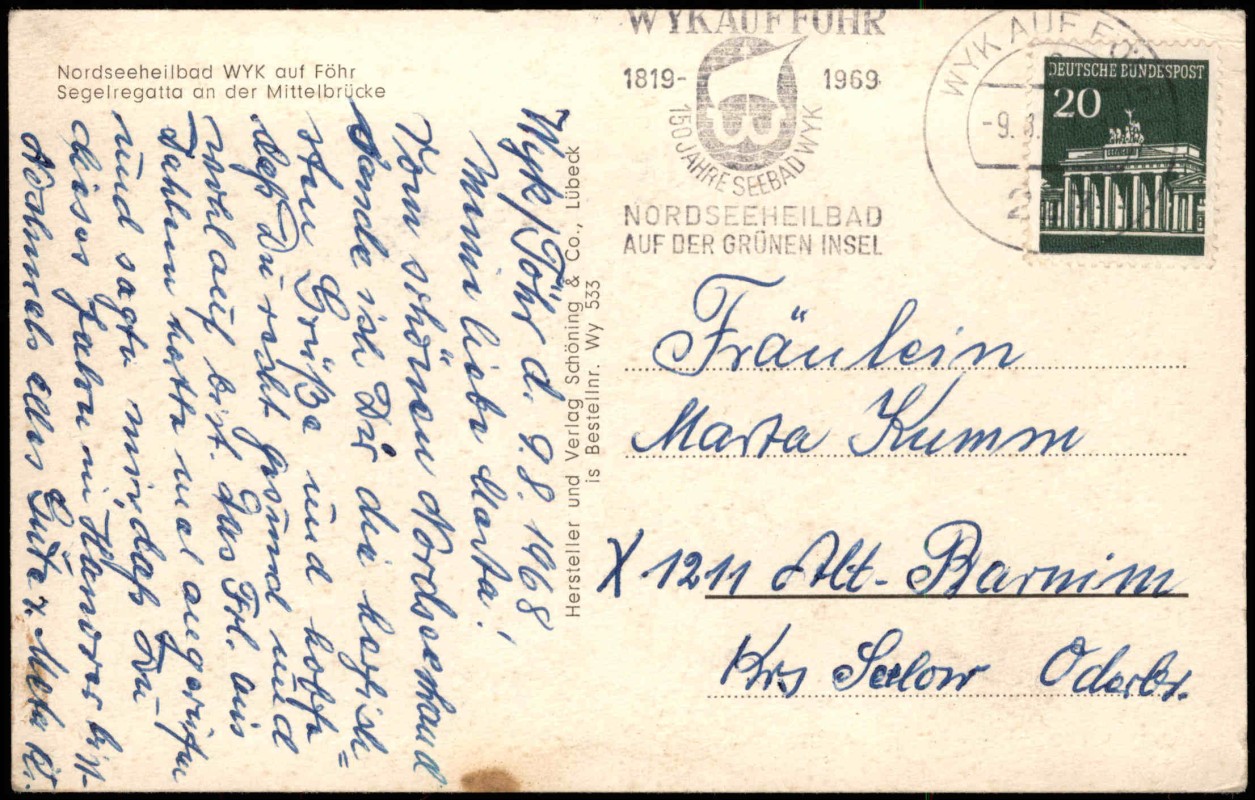 Nordseeheilbad WYK auf Föhr
Segelregatta an der Mittelbrücke
Wyk/Föhr d. 9.8.1968
Meine liebe Marta!
Vom schönen Nordseestrand
sende ich Dir die herzlich=
sten Grüße und hoffe
daß Du recht gesund und
wohlauf bist. Das Frl. aus
Dahlen hatte mal angerufen
und sagte mir, daß Du
dieses Jahr in Hannover bist
Nochmals alles Gute
Hersteller und Verlag Schöning & Co., Lübeck
is Bestellnr. Wy 533
WYK AUF FÖHR
1819- 1969
150 JAHRE SEEBAD WYK
NORDSEEHEILBAD
AUF DER GRÜNEN INSEL
WYK AUF FÖHR
-9.8.
DEUTSCHE BUNDESPOST
20
Fräulein
Marta Kumm
X 1211 Alt-Barnim
Krs Seelow Oderbr.